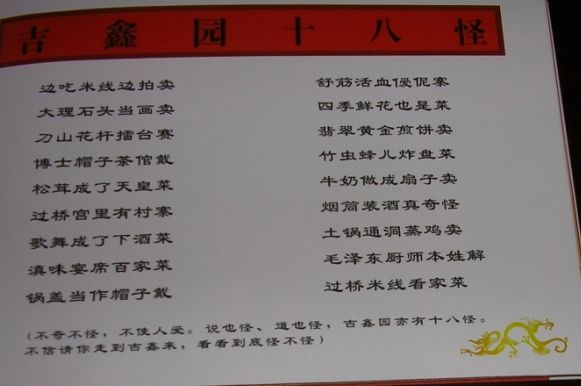 吉鑫园十八怪
边吃米线边拍卖
大理石头当画卖
刀山花杆擂台赛
博士帽子茶倌戴
松茸成了天皇菜
过桥宫里有村寨
歌舞成了下酒菜
滇味宴席百家菜
锅盖当作帽子戴
舒筋活血傻伲寨
四季鲜花也是菜
翡翠黄金煎饼卖
竹虫蜂儿炸盘菜
牛奶做成扇子卖
烟筒装酒真奇怪
土锅通洞蒸鸡卖
毛泽东厨师本姓解
过桥米线看家菜
(不奇不怪，不使人爱。说也怪、道也怪，吉鑫园亦有十八怪。
不信请你走到吉鑫来，看看到底怪不怪)